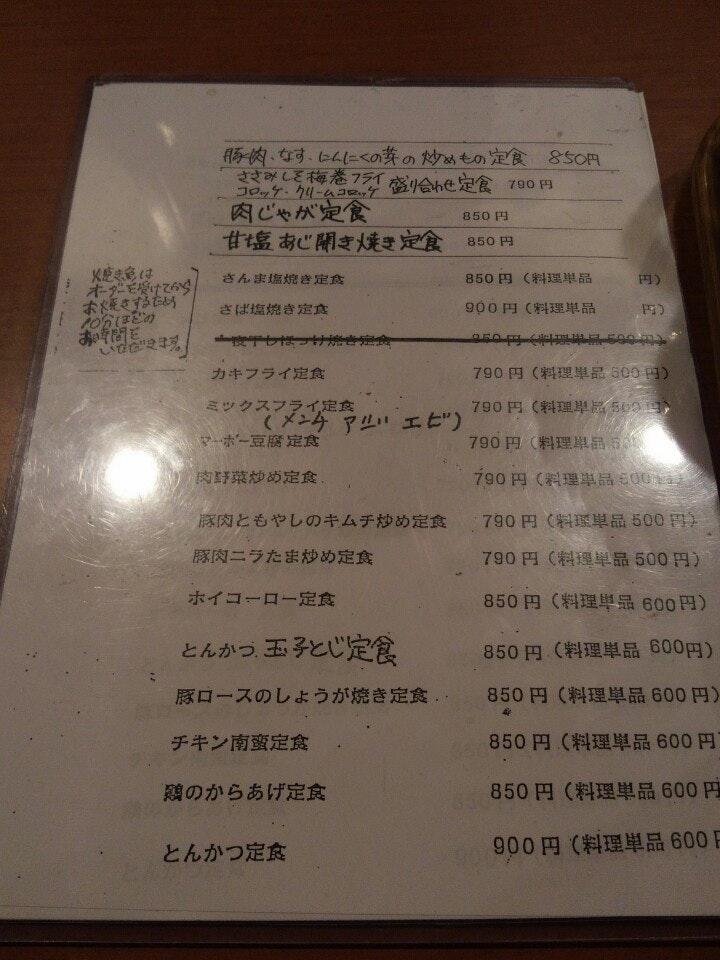 豚肉、なす、にんにくの芽の炒めもの定食 850円
ささみしそ梅巻フライ
コロッケ・クリームコロッケ 盛り合わせ定食 790円
肉じゃが定食 850円
甘塩あじ開き焼き定食 850円
焼き魚は
オーダーを受けてから
お焼きするため
10分ほどの
お時間を
いただきます。
さんま塩焼き定食 850円(料理単品 円)
さば塩焼き定食 900円(料理単品 円)
一夜干しほっけ焼き定食 850円(料理単品500円)
カキフライ定食 790円(料理単品500円)
ミックスフライ定食 790円(料理単品500円)
(メンチ アジ エビ)
マーボー豆腐定食 790円(料理単品
肉野菜炒め定食 790円(料理単品
豚肉ともやしのキムチ炒め定食 790円(料理単品500円)
豚肉ニラたま炒め定食 790円(料理単品500円)
ホイコーロー定食 850円(料理単品600円)
とんかつ玉子とじ定食 850円(料理単品600円)
豚ロースのしょうが焼き定食 850円(料理単品600円)
チキン南蛮定食 850円(料理単品600円
鶏のからあげ定食 850円(料理単品600円
とんかつ定食 900円(料理単品600円